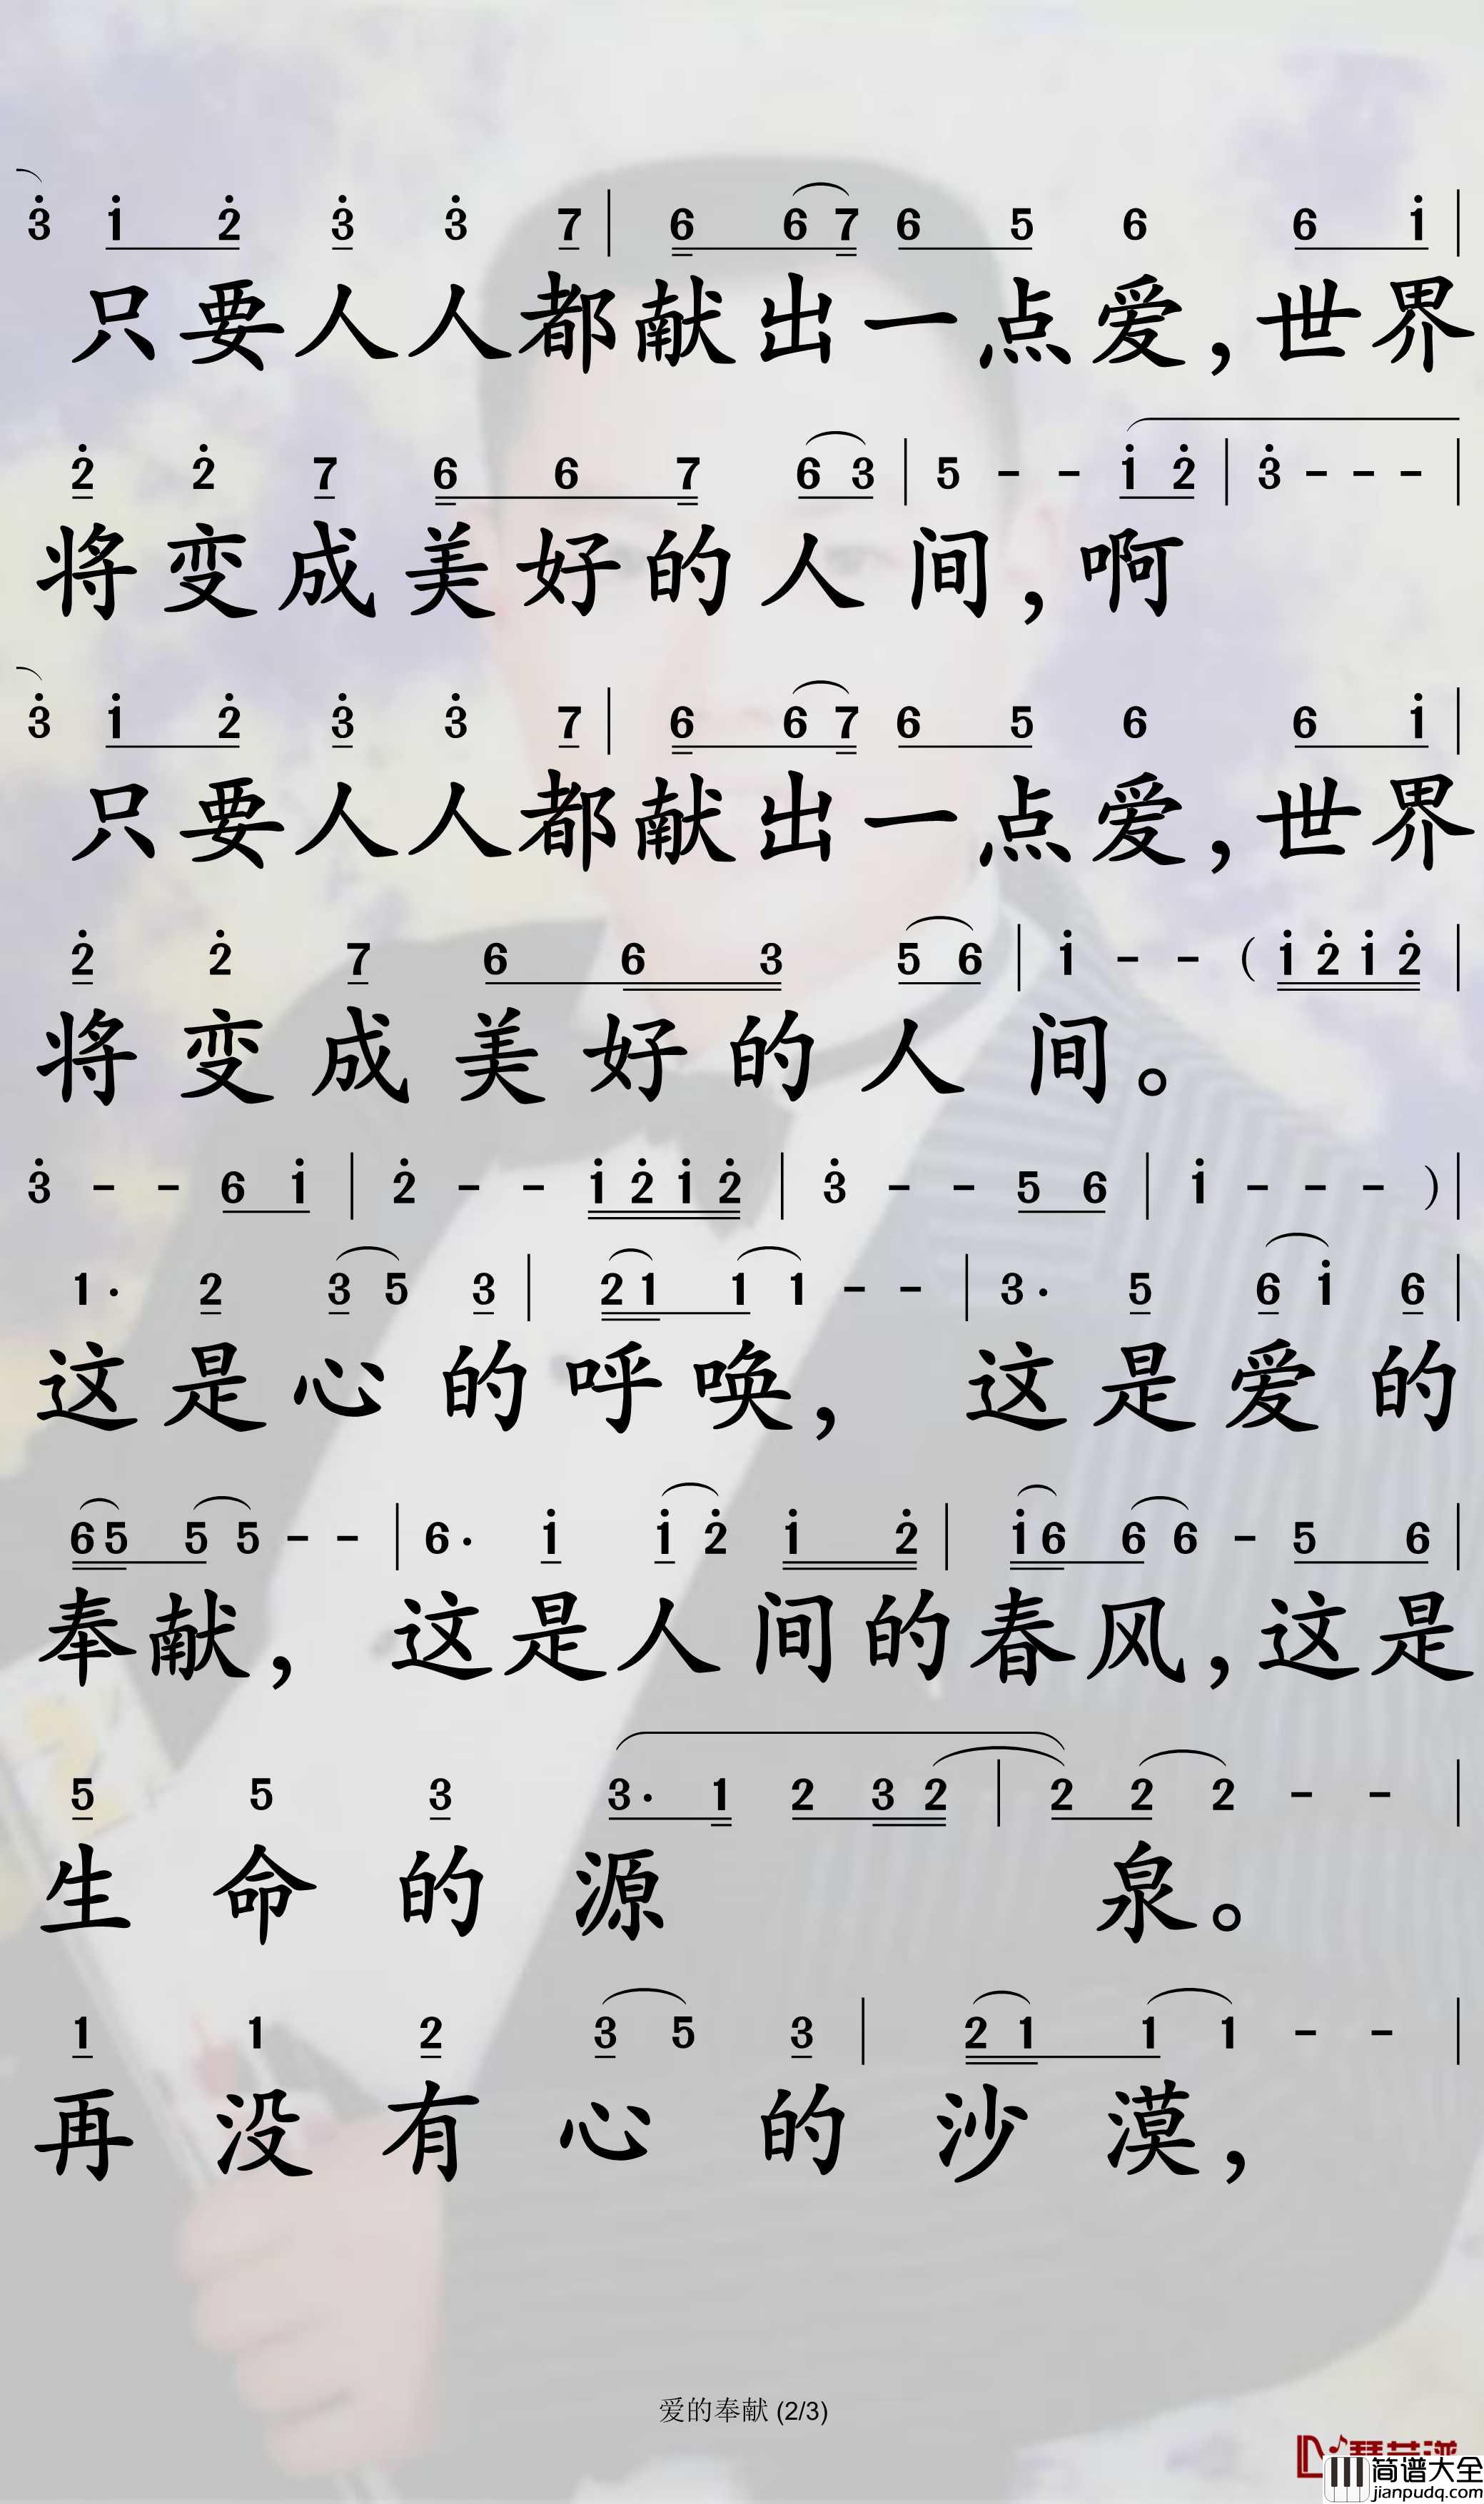 3̇ 1̇ 2̇ 3̇ 3̇ 7 | 6 6 7 6 5 6 6 1̇ |
只要人人都献出一点爱，世界
2̇ 2̇ 7 6 6 7 6 3 | 5 - - 1̇ 2̇ | 3̇ - - - |
将变成美好的人间，啊
3̇ 1̇ 2̇ 3̇ 3̇ 7 | 6 6 7 6 5 6 6 1̇ |
只要人人都献出一点爱，世界
2̇ 2̇ 7 6 6 3 5 6 | 1̇ - - ( 1̇ 2̇ 1̇ 2̇ |
将变成美好的人间。
3̇ - - 6 1̇ | 2̇ - - 1̇ 2̇ 1̇ 2̇ | 3̇ - - 5 6 | 1̇ - - - ) |
1· 2 3 5 3 | 2 1 1 1 - - | 3· 5 6 1̇ 6 |
这是心的呼唤，这是爱的
6 5 5 5 - - | 6· 1̇ 1̇ 2̇ 1̇ 2̇ | 1̇ 6 6 6 - 5 6 |
奉献，这是人间的春风，这是
5 5 3 3· 1 2 3 2 | 2 2 2 - - |
生命的源泉。
1 1 2 3 5 3 | 2 1 1 1 - - |
再没有心的沙漠，
爱的奉献 (2/3)
简谱大全
jianpudq.com